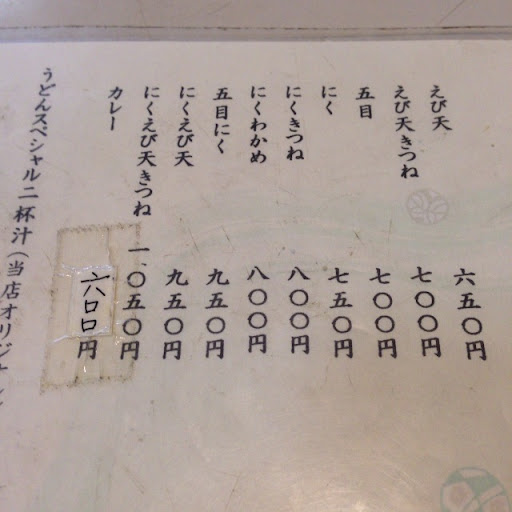 えび天 六五〇円
えび天きつね 七〇〇円
五目 七〇〇円
にく 七五〇円
にくきつね 八〇〇円
にくわかめ 八〇〇円
五目にく 九五〇円
にくえび天 九五〇円
にくえび天きつね 一、〇五〇円
カレー 六〇〇円
うどんスペシャル二杯汁（当店オリジ